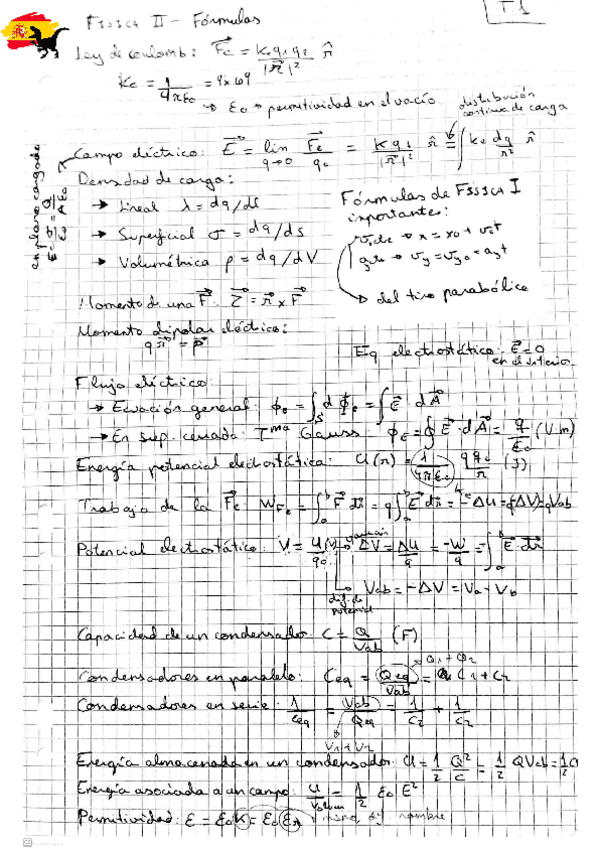 T1
Física II - Fórmulas
Ley de coulomb: F⃗e = Ke q1 q2 / |r⃗|² r̂
Ke = 1/4πε0 = 9x10^9
→ ε0 → permitividad en el vacío
distribución
continua de carga
Campo eléctrico: E⃗ = lim q→0 F⃗e/q0 = K q1/|r⃗|² r̂ = ∫ke dq/r² r̂
E = σ/ε0 = Q/Aε0
Densidad de carga:
→ Lineal λ = dq/dl
→ Superficial σ = dq/ds
→ Volumétrica ρ = dq/dV
Fórmulas de Física I
importante:
→ x = x0 + v0t
→ vy = vy0 = ayt
→ del tiro parabólico
Momento de una F⃗: τ⃗ = r⃗ x F⃗
Momento dipolar eléctrico:
q r⃗ = p⃗
Eq electrostático: E⃗ = 0
en el interior
Flujo eléctrico:
→ Ecuación general: ϕe = ∫s dϕe = ∫E⃗ · dA⃗
→ En sup. cerrada: Tma Gauss ϕE = ∮E⃗ · dA⃗ = q/ε0 (V·m)
Energía potencial electrostática: U(r) = 1/4πε0 qq0/r (J)
Trabajo de la F⃗e WFe = ∫a^b F⃗ dr⃗ = q∫a^b E⃗ dr⃗ = -ΔU = q(-ΔV) = qVab
Potencial electrostático: V = U(r)/q0 → variación ΔV = ΔU/q = -W/q = -∫a^b E⃗ · dr⃗
→ dif. de
potencial Vab = -ΔV = Va - Vb
Capacidad de un condensador: C = Q/Vab (F)
Q1+Q2
Condensadores en paralelo: Ceq = Qeq/Vab = C1 + C2
Condensadores en serie: 1/Ceq = Vab/Qeq = 1/C2 + 1/C2
V1+V2
Energía almacenada en un condensador: U = 1/2 Q²/C = 1/2 QVab = 1/2 C
Energía asociada a un campo: U/Volum = 1/2 ε0 E²
Permitividad: ε = ε0K = ε0 εr nombre